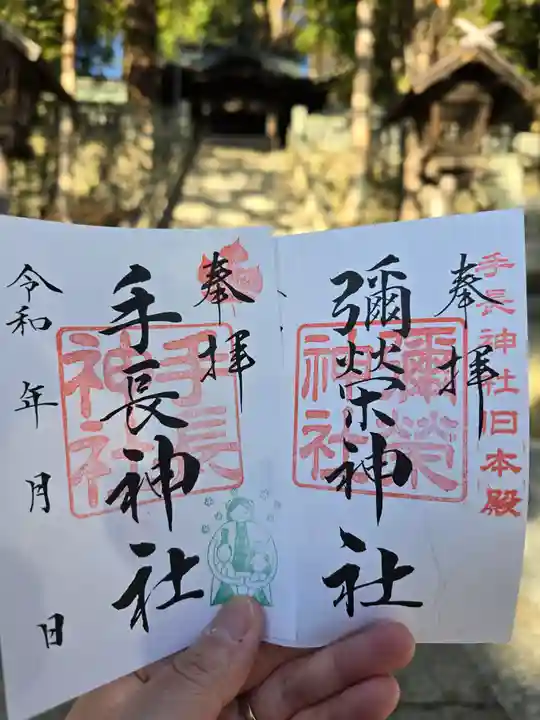 手長神社旧本殿
奉拝
彌榮神社
彌榮神社
奉拝
手長神社
手長神社
令和 年 月 日